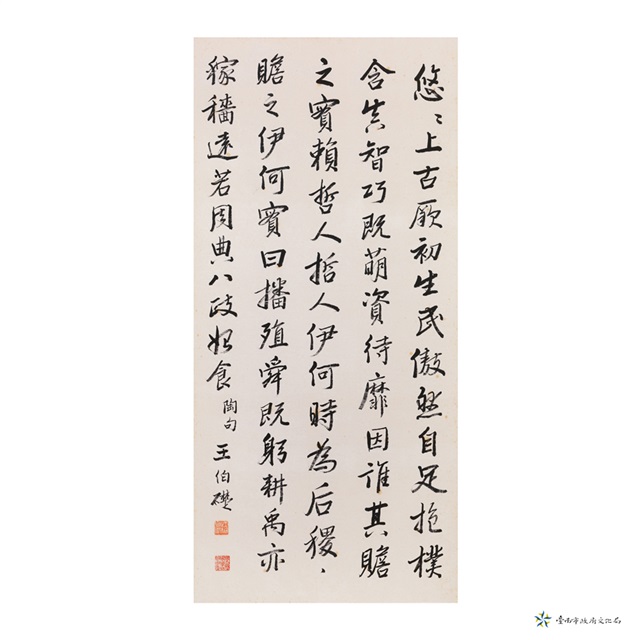 悠〻上古厥初生民傲然自足抱樸
含真智巧既萌資待靡因誰其贍
之實賴哲人哲人伊何時為后稷、
贍之伊何實曰播殖舜既躬耕禹亦
稼穡遠若周典八政始食 陶句 王伯礎
臺南市政府文化局